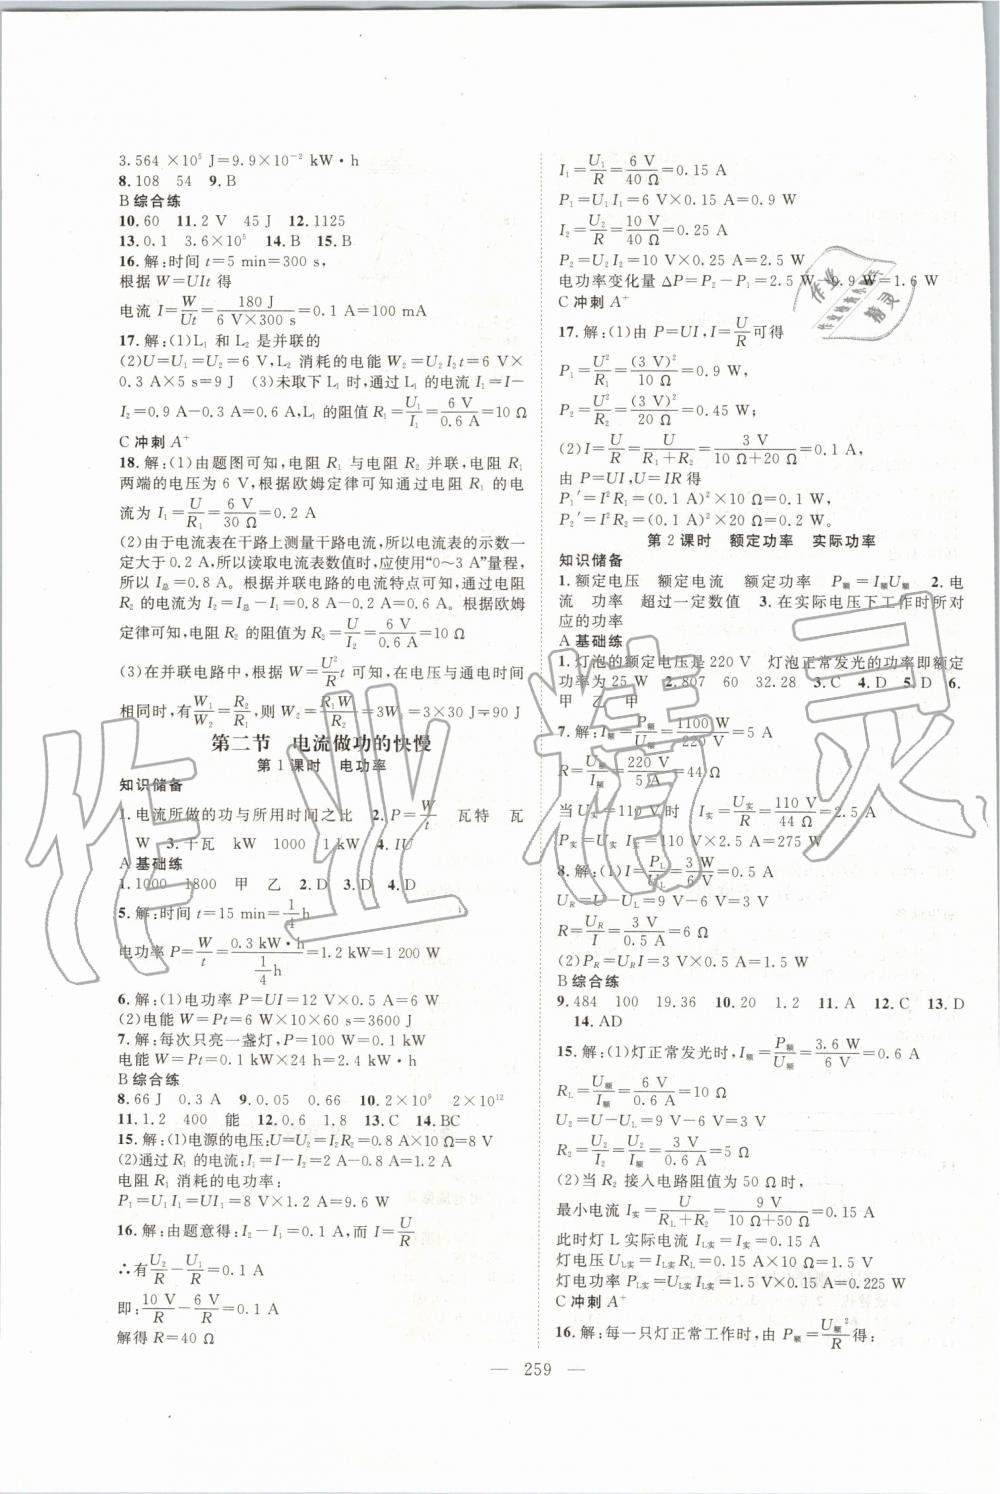 3.564 ×10⁵ J=9.9×10⁻² kW·h
8.108　54　9.B
B 综合练
10.60　11.2 V　45 J　12.1125
13.0.1　3.6×10⁵　14.B　15.B
16.解:时间 t=5 min=300 s,
根据 W=UIt 得
电流 I=W/Ut=180 J/(6 V×300 s)=0.1 A=100 mA
17.解:(1)L₁ 和 L₂ 是并联的
(2)U=U₁=U₂=6 V,L₂ 消耗的电能 W₂=U₂I₂t=6 V×
0.3 A×5 s=9 J　(3)未取下 L₁ 时,通过 L₁ 的电流 I₁=I-
I₂=0.9 A-0.3 A=0.6 A,L₁ 的阻值 R₁=U₁/I₁=6 V/0.6 A=10 Ω
C 冲刺 A⁺
18.解:(1)由题图可知,电阻 R₁ 与电阻 R₂ 并联,电阻 R₁
两端的电压为 6 V,根据欧姆定律可知通过电阻 R₁ 的电
流为 I₁=U/R₁=6 V/30 Ω=0.2 A
(2)由于电流表在干路上测量干路电流,所以电流表的示数一
定大于 0.2 A,所以读取电流表数值时,应使用“0~3 A”量程,
所以 I总=0.8 A。根据并联电路的电流特点可知,通过电阻
R₂ 的电流为 I₂=I总-I₁=0.8 A-0.2 A=0.6 A。根据欧姆
定律可知,电阻 R₂ 的阻值为 R₂=U/I₂=6 V/0.6 A=10 Ω
(3)在并联电路中,根据 W=U²/R t 可知,在电压与通电时间
相同时,有W₁/W₂=R₂/R₁,则 W₂=R₁W₁/R₂=3W₁=3×30 J=90 J
第二节　电流做功的快慢
第 1 课时　电功率
知识储备
1.电流所做的功与所用时间之比　2.P=W/t　瓦特　瓦
W　3.千瓦　kW　1000　1 kW　4.IU
A 基础练
1.1000　1800　甲　乙　2.D　3.D　4.D
5.解:时间 t=15 min=1/4 h
电功率 P=W/t=0.3 kW·h/(1/4 h)=1.2 kW=1 200 W
6.解:(1)电功率 P=UI=12 V×0.5 A=6 W
(2)电能 W=Pt=6 W×10×60 s=3600 J
7.解:每次只亮一盏灯,P=100 W=0.1 kW
电能 W=Pt=0.1 kW×24 h=2.4 kW·h
B 综合练
8.66 J　0.3 A　9.0.05　0.66　10.2×10⁹　2×10¹²
11.1.2　400　能　12.0.6　1.8　13.C　14.BC
15.解:(1)电源的电压:U=U₂=I₂R₂=0.8 A×10 Ω=8 V
(2)通过 R₁ 的电流:I₁=I-I₂=2 A-0.8 A=1.2 A
电阻 R₁ 消耗的电功率:
P₁=U₁I₁=UI₁=8 V×1.2 A=9.6 W
16.解:由题意得:I₂-I₁=0.1 A,而 I=U/R
∴有U₂/R-U₁/R=0.1 A
即:10 V/R-6 V/R=0.1 A
解得 R=40 Ω
I₁=U₁/R=6 V/40 Ω=0.15 A
P₁=U₁I₁=6 V×0.15 A=0.9 W
I₂=U₂/R=10 V/40 Ω=0.25 A
P₂=U₂I₂=10 V×0.25 A=2.5 W
电功率变化量 △P=P₂-P₁=2.5 W-0.9 W=1.6 W
C 冲刺 A⁺
17.解:(1)由 P=UI,I=U/R可得
P₁=U²/R₁=(3 V)²/10 Ω=0.9 W,
P₂=U²/R₂=(3 V)²/20 Ω=0.45 W;
(2)I=U/R=U/(R₁+R₂)=3 V/(10 Ω+20 Ω)=0.1 A,
由 P=UI,U=IR 得
P₁′=I²R₁=(0.1 A)²×10 Ω=0.1 W,
P₂′=I²R₂=(0.1 A)²×20 Ω=0.2 W。
第 2 课时　额定功率　实际功率
知识储备
1.额定电压　额定电流　额定功率　P额=I额U额　2.电
流　功率　超过一定数值　3.在实际电压下工作时所对
应的功率
A 基础练
1.灯泡的额定电压是 220 V　灯泡正常发光的功率即额定
功率为 25 W　2.807　60　32.28　3.C　4.D　5.D　6.
甲　乙　甲
7.解:I额=P额/U额=1100 W/220 V=5 A
R=U额/I额=220 V/5 A=44 Ω
当 U实=110 V 时　I实=U实/R=110 V/44 Ω=2.5 A
P实=U实I实=110 V×2.5 A=275 W
8.解:(1)I=PL/UL=3 W/6 V=0.5 A
UR=U-UL=9 V-6 V=3 V
R=UR/I=3 V/0.5 A=6 Ω
(2)PR=URI=3 V×0.5 A=1.5 W
B 综合练
9.484　100　19.36　10.20　1.2　11.A　12.C　13.D
14.AD
15.解:(1)灯正常发光时,I额=P额/U额=3.6 W/6 V=0.6 A
RL=U额/I额=6 V/0.6 A=10 Ω
U₂=U-UL=9 V-6 V=3 V
R₂=U₂/I₂=U₂/I额=3 V/0.6 A=5 Ω
(2)当 R₂ 接入电路阻值为 50 Ω时,
最小电流 I实=U/(RL+R₂)=9 V/(10 Ω+50 Ω)=0.15 A
此时灯 L 实际电流 IL实=I实=0.15 A
灯电压 UL实=IL实RL=0.15 A×10 Ω=1.5 V
灯电功率 PL实=UL实IL实=1.5 V×0.15 A=0.225 W
C 冲刺 A⁺
16.解:每一只灯正常工作时,由 P额=U额²/R得:
— 259 —
作业精灵
作业
精灵